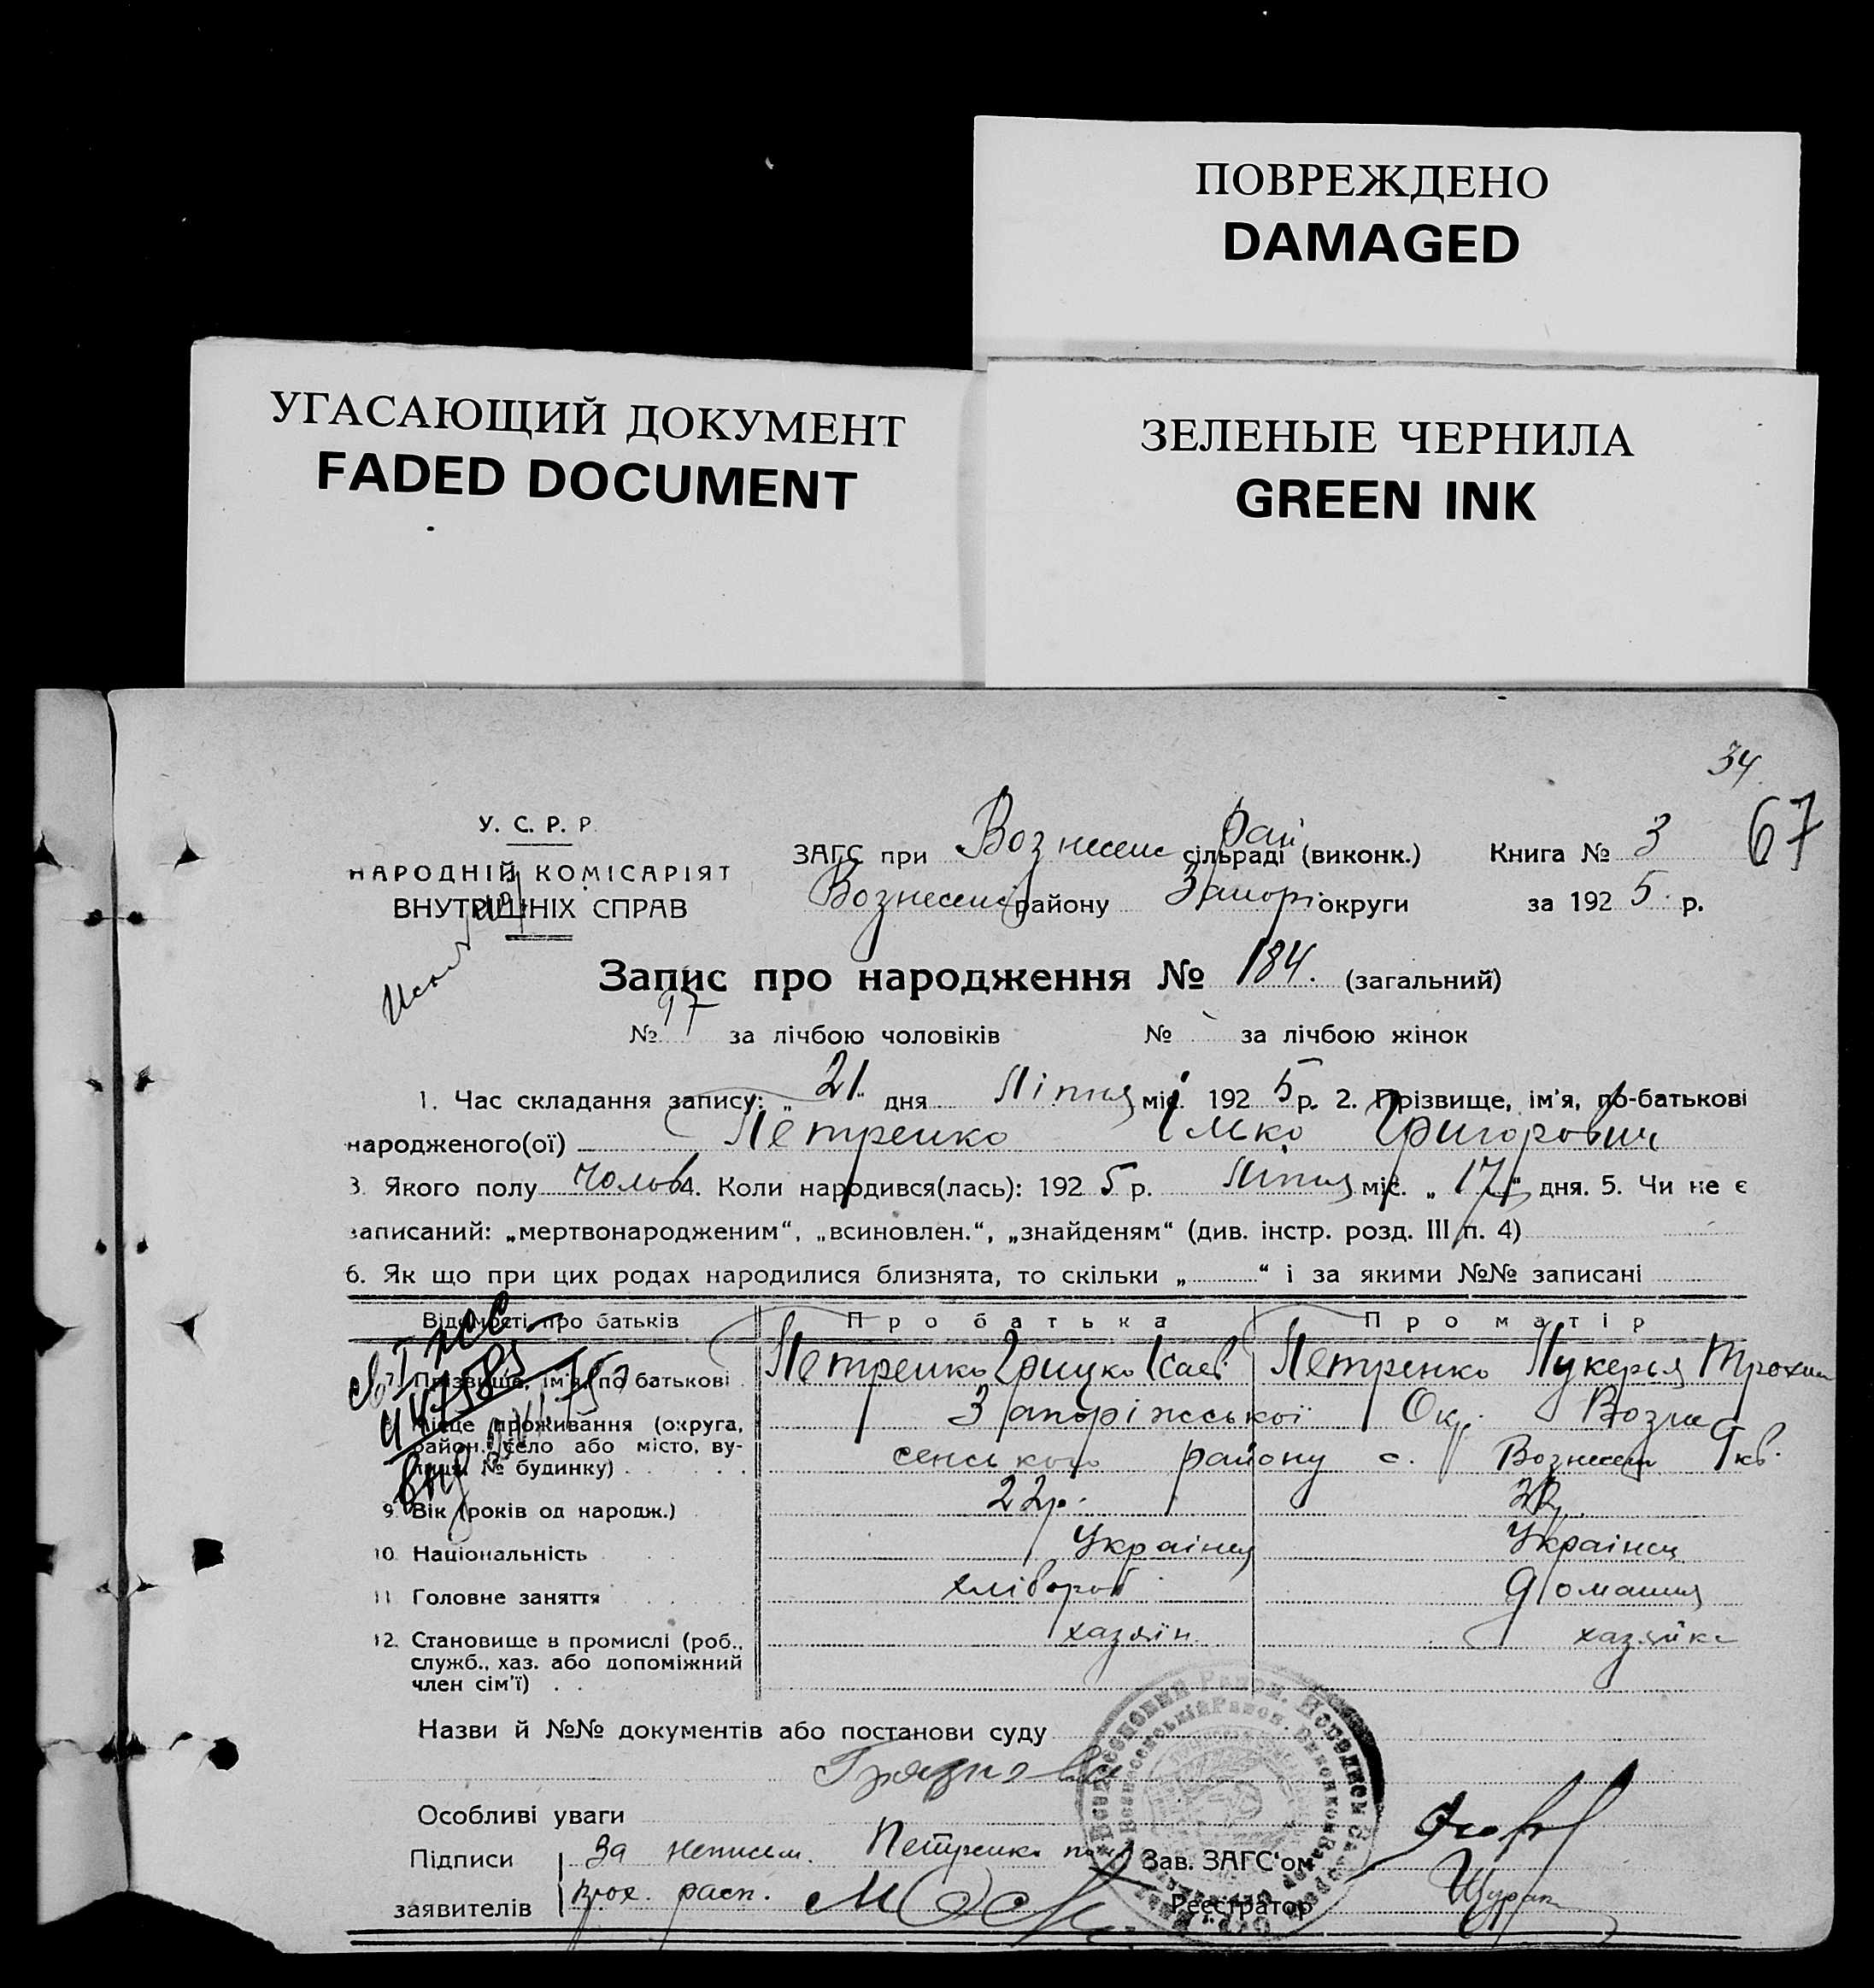 ПОВРЕЖДЕНО
DAMAGED
УГАСАЮЩИЙ ДОКУМЕНТ
FADED DOCUMENT
ЗЕЛЕНЫЕ ЧЕРНИЛА
GREEN INK
34
67
У. С. Р. Р.
НАРОДНІЙ КОМІСАРІЯТ
ВНУТРІШНІХ СПРАВ
ЗАГС при Вознесенс Рай сільраді (виконк.) Книга № 3
Вознесенс району Запорі округи за 1925 р.
Запис про народження № 184. (загальний)
№ 97 за лічбою чоловіків № за лічбою жінок
1. Час складання запису: „21“ дня Ліпня міс. 1925 р. 2. Прізвище, ім'я, по-батькові
народженого(ої) Петренко Ілько Григорович
3. Якого полу чолов 4. Коли народився(лась): 1925 р. Ліпня міс. „17“ дня. 5. Чи не є
записаний: „мертвонародженим“, „всиновлен.“, „знайденям“ (див. інстр. розд. III п. 4)
6. Як що при цих родах народилися близнята, то скільки „ “ і за якими №№ записані
Відомості про батьків Про батька Про матір
7. Прізвище, ім'я, по батькові Петренко Грицко Ісаєв. Петренко Лукерья Трохим
8. Місце проживання (округа, Запоріжської Окр. Возне
район, село або місто, ву-
лиця, № будинку) сенського району с. Вознесен
9. Вік (років од народж.) 22р.
10. Національність Українця Українця
11. Головне заняття хлібороб Домашня
12. Становище в промислі (роб., хазяїн хазяйка
служб., хаз. або допоміжний
член сім'ї)
Назви й №№ документів або постанови суду
Особливі уваги
Підписи За неписьм. Петренка Зав. ЗАГС'ом
заявителів расп. Реєстратор